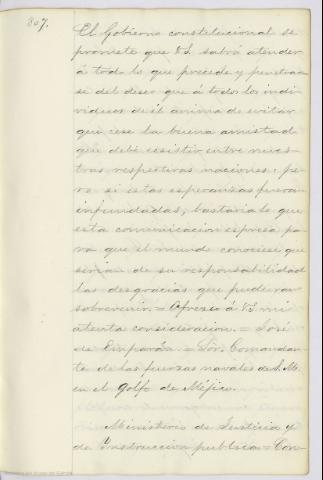 807.
El Gobierno constitucional se
promete que VS. sabrá atender
á todo lo que precede y penetrar-
se del deseo que á todos los indi-
viduos de él anima de evitar
que cese la buena amistad
que debe ecsistir entre nues-
tras respectivas naciones; pe-
ro si estas esperanzas fueran
infundadas, bastaria lo que
esta comunicacion espresa pa-
ra que el mundo conociese que
serian de su responsabilidad
las desgracias que pudieran
sobrevenir. = Ofrezco á VS. mi
atenta consideracion. = José
de Emparán. = Sor. Comandan-
te de las fuerzas navales de S. M.
en el Golfo de Méjico.
Ministerio de Justicia y
de Instruccion publica = Con-